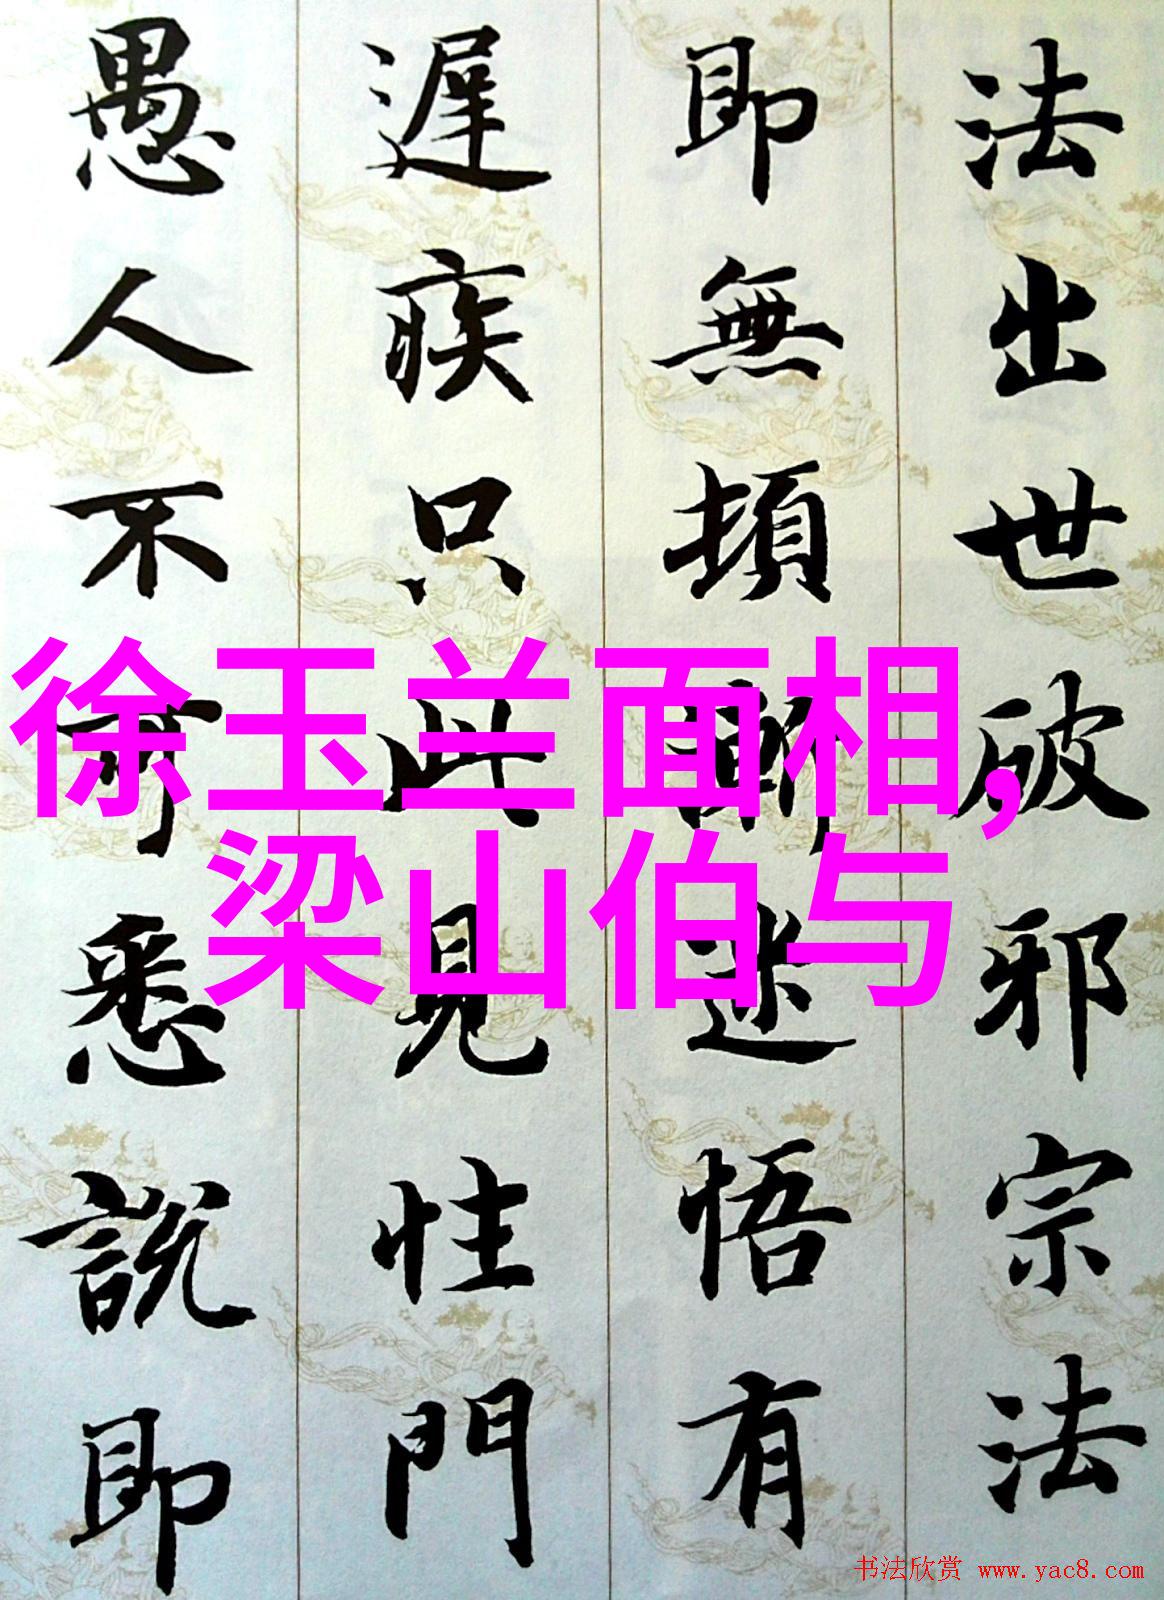 法出世破邪宗法
即無頓漸迷悟有
遲疾只此見性門
愚人不可悉說即
徐玉兰面相,
梁山伯与
书法欣赏 www.yac8.com